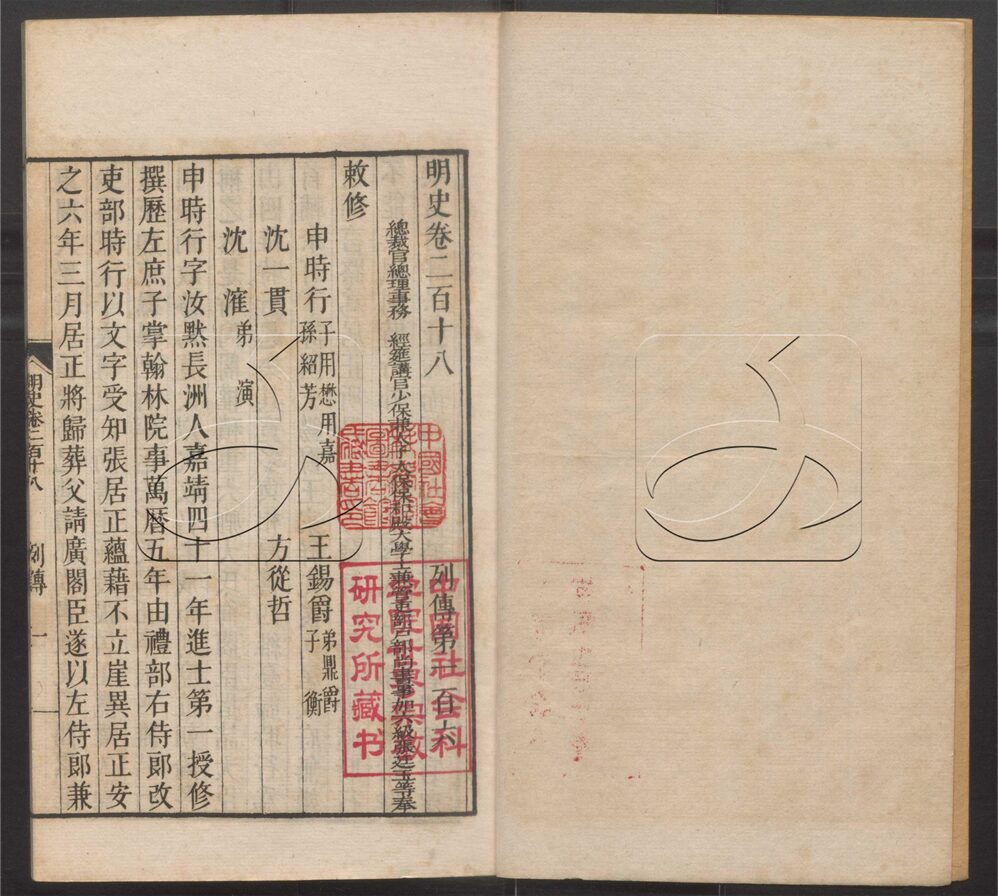 明史卷二百十八
列傳第一百六
總裁官總理事務 經筵講官少保兼太子太保保和殿大學士兼管吏部戶部尚書事加六級張廷玉等奉
敕修
申時行 子用懋 用嘉 孫紹芳 王錫爵 弟鼎爵 子衡
沈一貫 方從哲
沈㴶 弟演
申時行字汝默長洲人嘉靖四十一年進士第一授修
撰歷左庶子掌翰林院事萬曆五年由禮部右侍郎改
吏部時行以文字受知張居正蘊藉不立崖異居正安
之六年三月居正將歸葬父請廣閣臣遂以左侍郎兼
明史卷二百十八 列傳 一
研究所藏书